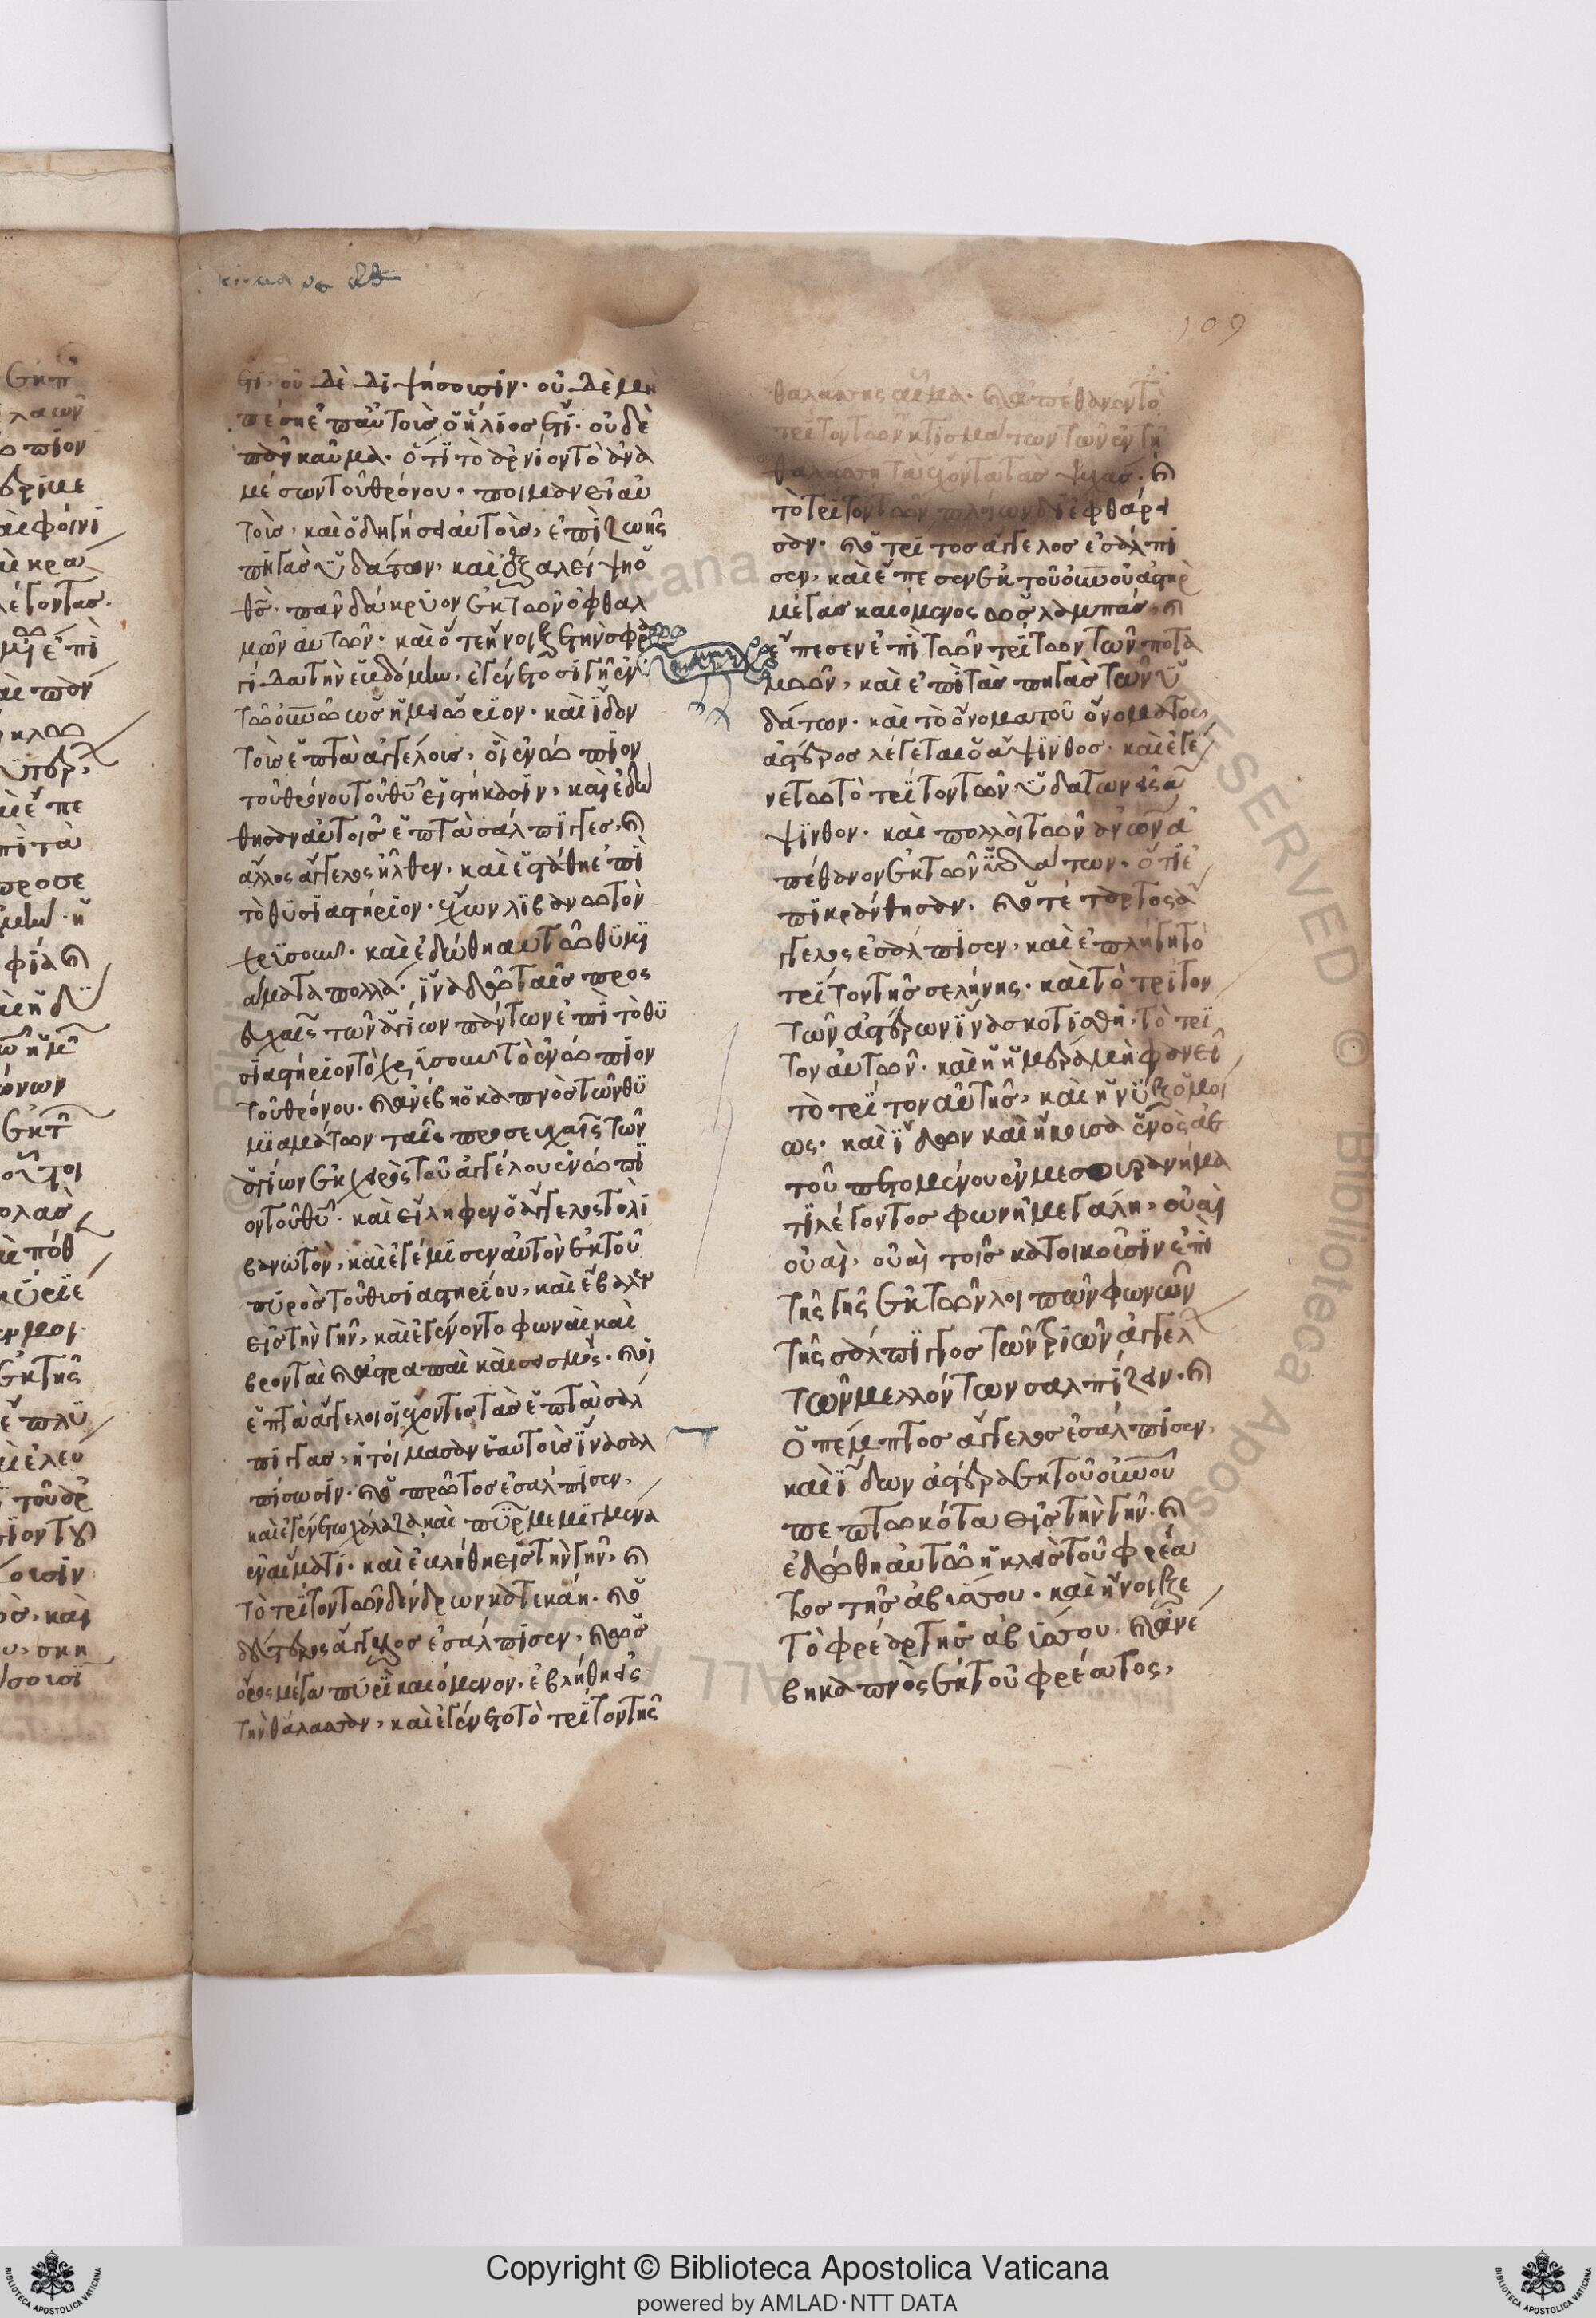 109
ἔτι· οὐδὲ διψήσουσιν· οὐδὲ μὴ
πέσηἐπαὐτοὶσ ὁ ἥλϊοσ ἔτϊ· οὐδὲ
πὰν καῦμα· ὅτϊ τὸ ἀρνίον τὸ ἀνα
μέσων τοῦ θρόνου· ποιμανεῖ αὐ
τοὶσ· καὶ ὁδηγήσει αὐτοὶσ, ἐπὶ ζωῆς
πηγὰσ ὑδάτων, καὶ ἐξαλείψη ὁ
θσ̅· πᾶν δάκρϋον ἐκ τῶν ὀφθαλ
μῶν αὐτῶν· καὶ ὅτε ἤνοιξε τὴν σφρα
γίδα τὴν ἑβδόμην, ἐγένετο σιγῆ ἐν
τῶ οὐνῶ ὡσ ἡμιώρϊον· καὶ ἴδον
τοὶσ ἑπτὰ ἀγγέλοισ, οἱ ἐνώπϊον
τοῦ θρόνου τοῦ θυ̅ εἱστήκασϊν, καὶ ἐδώ
θησαν αὐτοῖσ ἑπτὰ σάλπϊγγεσ, καὶ
ἄλλος ἄγγελος ἦλθεν, καὶ ἐστάθη ἐπὶ
τὸ θϋσϊαστήρϊον· ἔχων λϊβανωτὸν
χρϊσοῦν· καὶ ἐδώθη αυτῶ θϋμι
άματα πολλὰ· ἵνα δῶ ταῖσ προσ
ευχαῖς τῶν ἁγίων πάντων ἐπὶ τὸ θϋ
σϊαστήρϊον τὸ χρϊσοῦν τὸ ἐνώπϊον
τοῦ θρόνου· καὶ ἀνέβη ὁ καπνὸσ τῶν θϋ
μϊαμάτων ταῖς προσευχαῖς τῶν
ἁγίων ἐκ χειρὸς τοῦ ἀγγέλου ἐνώπϊ
ον τοῦ θυ̅· καὶ εἴληφεν ὁ ἄγγελος τὸ λϊ
βανωτὸν, καὶ ἐγέμϊσεν αὐτὸν ἐκ τοῦ
πϋρὸσ τοῦ θισιαστηρϊου, καὶ ἔβαλεν
εἰσ τὴν γῆν, καὶ ἐγένοντο φωναὶ καὶ
βρονταὶ καὶ ἀστραπαὶ καὶ σεισμὸς· καὶ οἱ
ἑπτὰ ἄγγελοι οἱ ἔχοντεσ τὰσ ἑπτὰ σάλ
πιγγασ, ἡτοίμασαν ἑαυτοὶσ ἵνα σαλ
πίσωσϊν· καὶ ὁ πρῶτοσ ἐσάλπϊσεν,
καὶ ἐγένετω χάλαζα καὶ πῦρ μεμϊγμένα
ἐν αἵματϊ· καὶ ἐβλήθη εἰσ τὴν γῆν, καὶ
τὸ τρΐτον τῶν δένδρων κατεκάη· καὶ ὁ
δεύτερος ἄγγελοσ ἐσάλπϊσεν, καὶ ὡσ
ὄρος μέγα πϋρΐ καιόμενον, ἐβλήθη εἰς
τὴν θάλασσαν, καὶ ἐγένετο τὸ τρΐτον τῆς
θαλάσσης αἷμα· καὶ ἀπέθανον τὸ
τρΐτον τῶν κτισμάτων τῶν ἐν τῆ
θαλάσση τὰ ἔχοντα τὰσ ψυχάσ· καὶ
τὸ τρΐτον τῶν πλοίων διεφθάρη
σαν· καὶ ὁ τρΐτοσ ἄγγελοσ ἐσάλπι
σεν, καὶ ἔπεσεν ἐκ τοῦ οὐνοῦ ἀστὴρ
μέγασ καιόμενος ὡσ λαμπάσ, καὶ
ἔπεσεν ἐπὶ τῶν τρΐτων τῶν ποτα
μῶν, καὶ ἐπὶ τὰσ πηγὰσ τῶν ὑ
δάτων· καὶ τὸ ὄνομα τοῦ ὀνόματος
ἀστέροσ λέγεται ὁ ἄψϊνθοσ· καὶ ἐγέ
νετω τὸ τρΐτον τῶν ὑδάτων εἰς ἄ
ψϊνθον· καὶ πολλοὶ τῶν ἀνων̅ ἀ
πέθανον ἐκ τῶν ὑδάτων· ὅτϊ ἐ
πϊκράνθησαν· καὶ ὁ τέταρτος ἄ
γγελος ἐσάλπϊσεν, καὶ ἐπλήγη τὸ
τρΐτον τῆσ σελήνης· καὶ τὸ τρΐτον
τῶν ἀστέρων ἵνα σκοτϊσθῆ, τὸ τρΐ
τον αὐτῶν· καὶ ἡ ἡμέρα μὴ φανεῖ
τὸ τρΐτον αὐτῆσ, καὶ ἡ νὺξ ὁμοί
ως· καὶ ἴδον καὶ ἤκουσα ἑνὸς ἀε
τοῦ πετομένου ἐν μεσουρανήμα
τϊ λέγοντοσ φωνῆ μεγάλη, οὐαὶ
οὐαὶ, οὐαὶ τοῖσ κατοικοῦσϊν ἐπὶ
τῆς γῆς ἐκ τῶν λοιπῶν φωνῶν
τῆς σάλπϊγγοσ τῶν τριῶν ἀγγέλ
τῶν μελλόντων σαλπίζειν· καὶ
ὁ πέμπτοσ ἄγγελοσ ἐσάλπϊσεν,
καὶ ἴδων ἀστέρα ἐκ τοῦ οὐνοῦ
πεπτωκότα εἰσ τὴν γῆν· καὶ
ἐδώθη αὐτῶ ἡ κλεὶσ τοῦ φρέα
τοσ τῆσ ἀβύσσου· καὶ ἤνοιξε
τὸ φρέαρ τῆσ ἀβύσσου, καὶ ἀνέ
βη καπνὸς ἐκ τοῦ φρέατος,
Copyright © Biblioteca Apostolica Vaticana
powered by AMLAD·NTT DATA